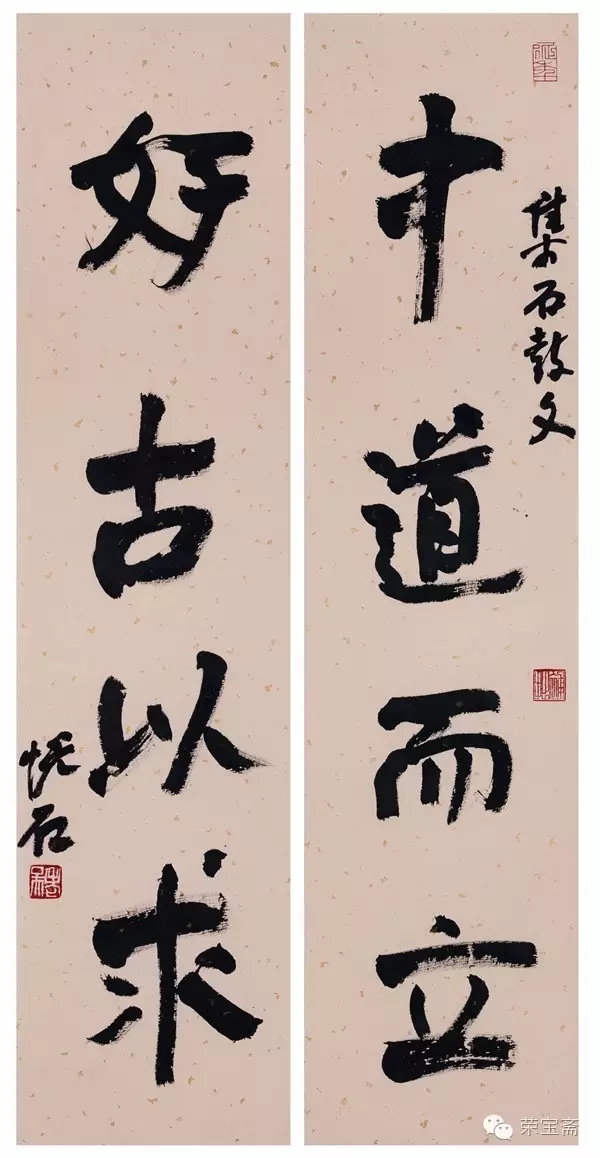 集石鼓文
中道而立
好古以求
石
荣宝斋